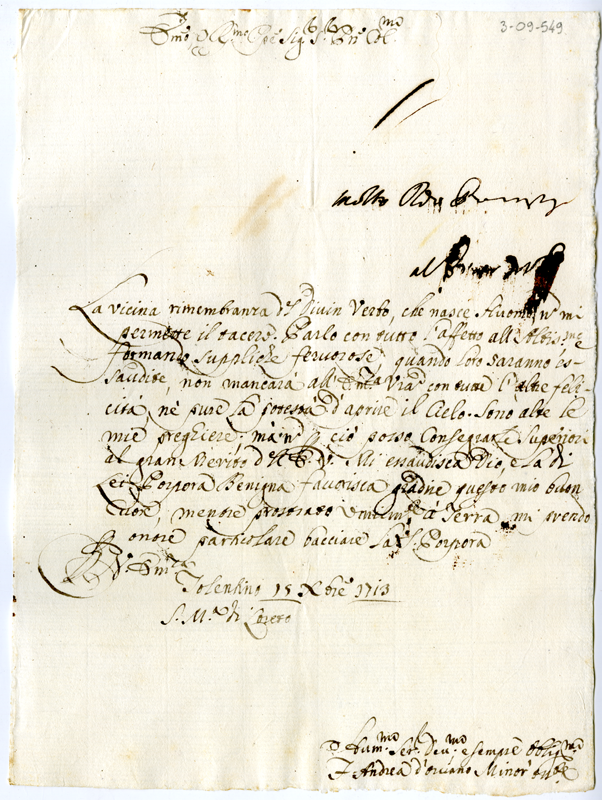 3-09-549
Em̃o e R̃mo Pre Sig.r S.r Prõn Col.mo
molto Rdo
al
La vicina rimembranza del Divin Verbo, che nasce Huomo, nõ mi
permette il tacere. Parlo con tutto l'affetto all'Altis.mo
formando suppliche fervorose, quando loro saranno es-
saudite, non mancarà all'Em.za V'ra con tutte l'altre feli-
cità, nè pure la potestà d'aprire il Cielo. Sono alte le
mie preghiere; mà nõ ciò posso consegrare superiore
al gran Merito dell'E. V. Mi essaudisca Dio, e la di
Lei Porpora Benigna favorisca gradire questo mio buon
cuore, mentre prostrato à Terra, mi prendo
onore particolare bacciare la S. Porpora
D. V. Em.za
Tolentino 15 Xbre 1713
S. M.a di Loreto
Hum.mo Ser. Dev.mo e sempre Obblig.mo
F. Andrea d'Minor